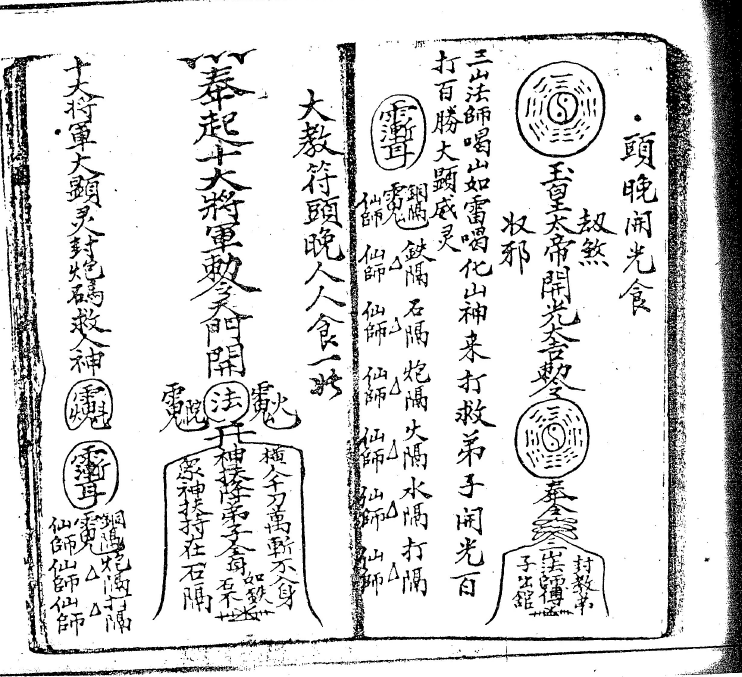 頭晚開光食
劫煞
玉皇太帝開光大吉勅令
奉令
三山法師傳
封教弟
子出舘
收邪
三山法師喝山如雷喝化山神来打救弟子開光百
打百勝大顕威灵
銅隔 鉄隔 石隔 炮隔 火隔 水隔 打隔
仙師 仙師 仙師 仙師 仙師 仙師 仙師
大教符頭晚人人食一
奉起十大將軍勅令天門開
法
橫人千刀萬斬不入身
神扶降弟子
如鉄
石不
眾神扶持在石隔
十大將軍大顕灵封炮碼救人神
銅隔炮隔打隔
仙師仙師仙師